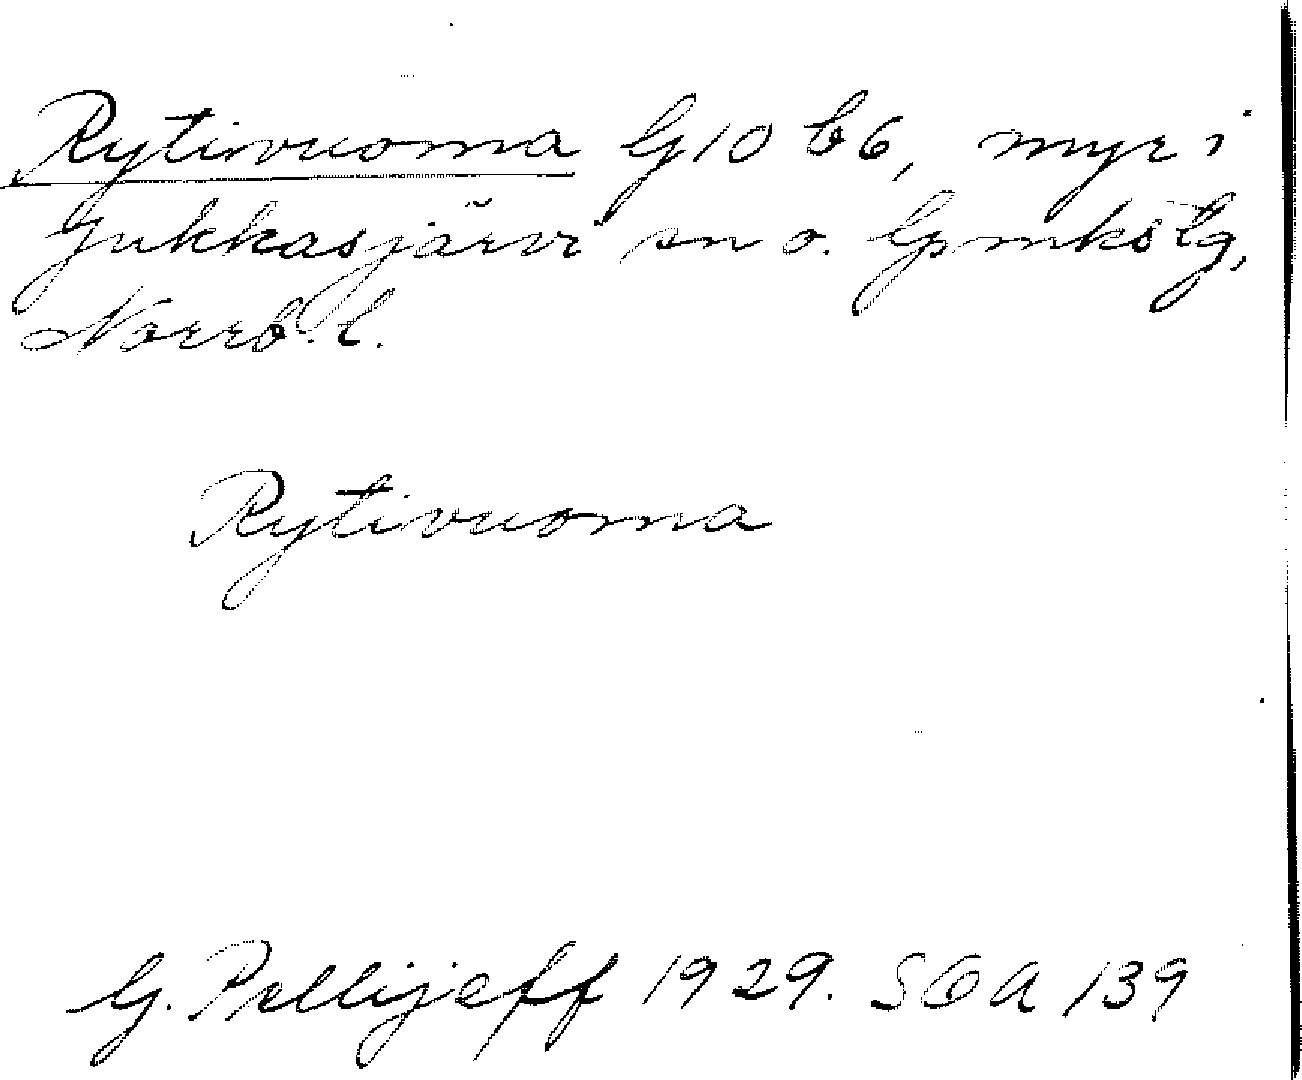 Rytivuoma G10 b6, myr i
Jukkasjärvi sn o. lpmkstg,
Norrb. l.
Rytivuoma
G. Pellijeff 1929. SOA 139